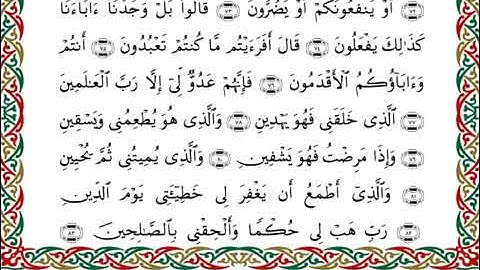 ٧٢ أَوْ يَنفَعُونَكُمْ أَوْ يَضُرُّونَ ٧٣ قَالُوا۟ بَلْ وَجَدْنَآ ءَابَآءَنَا
كَذَٰلِكَ يَفْعَلُونَ ٧٤ قَالَ أَفَرَءَيْتُم مَّا كُنتُمْ تَعْبُدُونَ ٧٥ أَنتُمْ
وَءَابَآؤُكُمُ ٱلْأَقْدَمُونَ ٧٦ فَإِنَّهُمْ عَدُوٌّ لِّىٓ إِلَّا رَبَّ ٱلْعَٰلَمِينَ
٧٧ ٱلَّذِى خَلَقَنِى فَهُوَ يَهْدِينِ ٧٨ وَٱلَّذِى هُوَ يُطْعِمُنِى وَيَسْقِينِ
٧٩ وَإِذَا مَرِضْتُ فَهُوَ يَشْفِينِ ٨٠ وَٱلَّذِى يُمِيتُنِى ثُمَّ يُحْيِينِ
٨١ وَٱلَّذِىٓ أَطْمَعُ أَن يَغْفِرَ لِى خَطِيٓـَٔتِى يَوْمَ ٱلدِّينِ
٨٢ رَبِّ هَبْ لِى حُكْمًا وَأَلْحِقْنِى بِٱلصَّٰلِحِينَ ٨٣